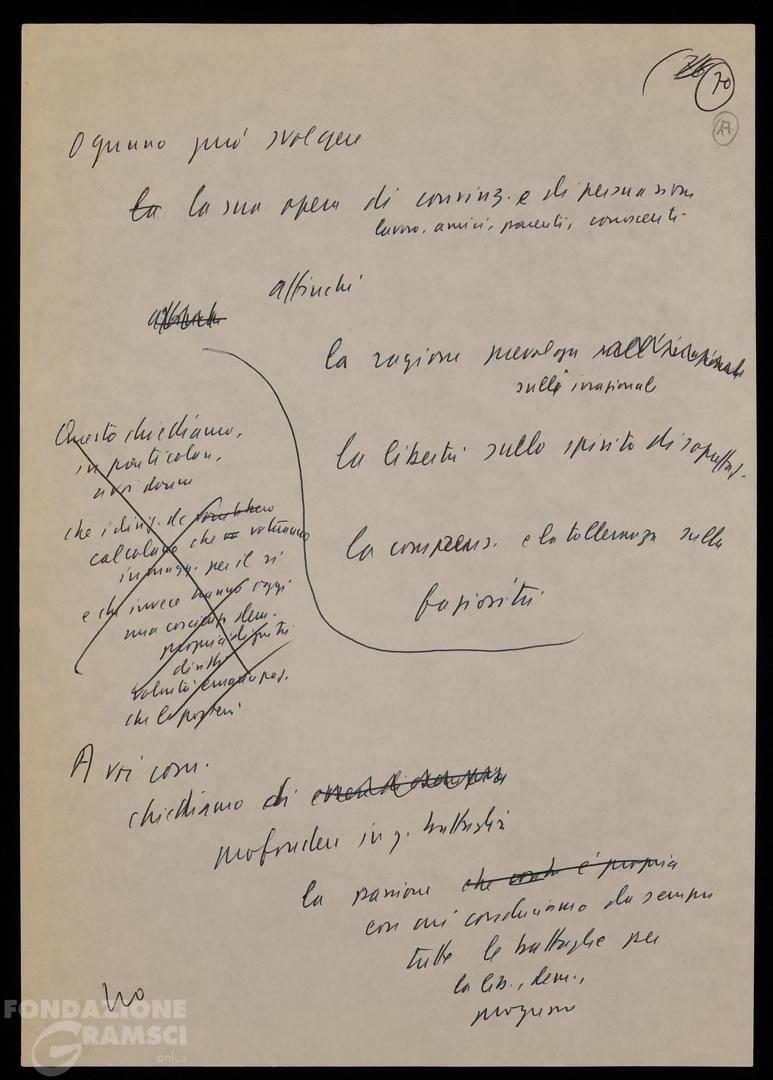 70
17
Ognuno può svolgere
la la sua opera di convinz. e di persuasione
lavoro, amici, parenti, conoscenti
affinché
la ragione prevalga
sull' irrazionale
la libertà sullo spirito di sopraffaz.
la comprens. e la tolleranza sulla
faziosità
Questo chiediamo,
in particolare,
a voi donne
che i dirig. dc
calcolano che voteranno
in magg. per il sì
e che invece hanno oggi
una coscienza dem.
propria di questi
diritti
volontà emancipaz.
che la
A voi com.
chiediamo di
profondere in q. battaglia
la passione che è propria
con cui conduciamo da sempre
tutte le battaglie per
la lib., dem.,
progresso
No
FONDAZIONE
GRAMSCI
onlus